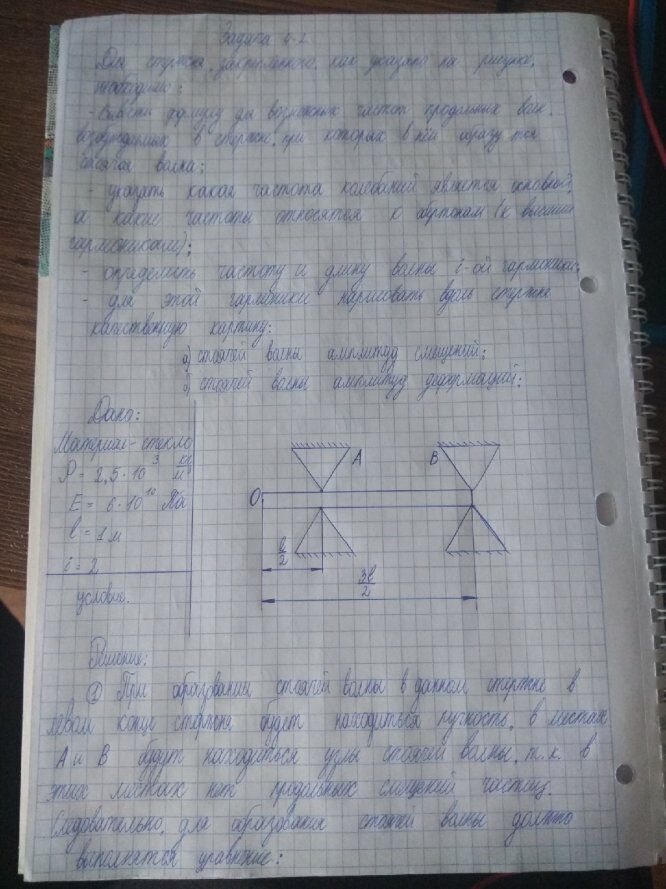 Задача 4-2
Для стержня, закрепленного, как указано на рисунке,
необходимо:
- вывести формулу для возможных частот продольных волн,
возбуждаемых в стержне, при которых в нём образуется
стоячая волна;
- указать какая частота колебаний является основной,
а какие частоты относятся к обертонам (к высшим
гармоникам);
- определить частоту и длину волны i-ой гармоники;
- для этой гармоники нарисовать вдоль стержня
качественную картину:
а) стоячей волны амплитуд смещений;
б) стоячей волны амплитуд деформаций;
Дано:
Материал - стекло
ρ = 2,5·10³ кг/м³
E = 6·10¹⁰ Па
l = 1 м
i = 2
условие.
A
B
O
l/2
3l/2
Решение:
① При образовании стоячей волны в данном стержне в
левом конце стержня будет находиться пучность, в местах
A и B будут находиться узлы стоячей волны, т.к. в
этих местах нет продольных смещений частиц.
Следовательно, для образования стоячей волны должно
выполнятся уравнение: